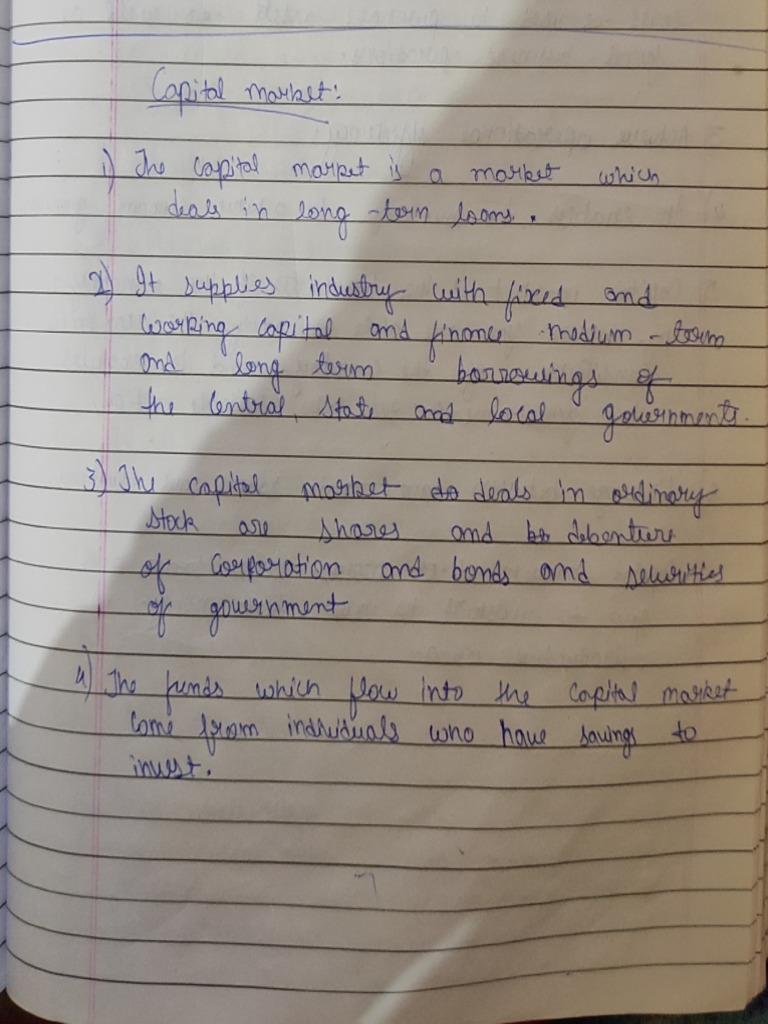 Capital market:
1) The capital market is a market which
deals in long-term loans.
2) It supplies industry with fixed and
working capital and finance medium-term
and long term borrowings of
the central, state and local governments.
3) The capital market do deals in ordinary
stock are shares and be debenture
of corporation and bonds and securities
of government
4) The funds which flow into the capital market
come from individuals who have savings to
invest.